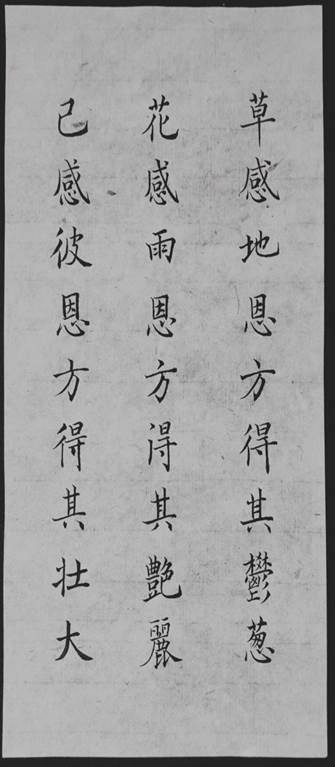 草感地恩方得其鬱葱
花感雨恩方得其艷麗
己感彼恩方得其壮大